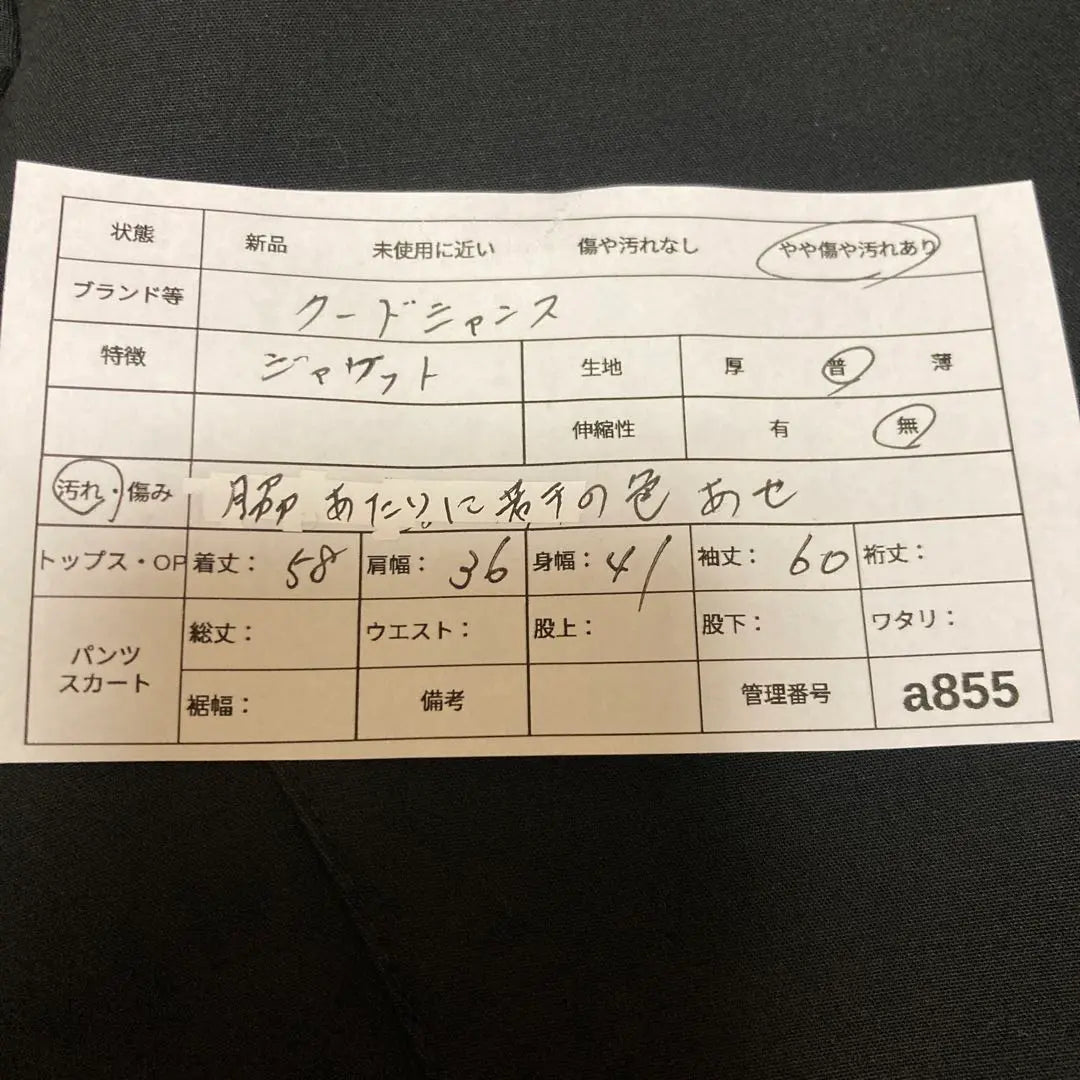 状態 新品 未使用に近い 傷や汚れなし やや傷や汚れあり
ブランド等 クードシャンス
特徴 ジャケット 生地 厚 普 薄
伸縮性 有 無
汚れ・傷み 脇あたりに若干の色あせ
トップス・OP 着丈: 58 肩幅: 36 身幅: 41 袖丈: 60 裄丈:
パンツ スカート 総丈: ウエスト: 股上: 股下: ワタリ:
裾幅: 備考 管理番号 a855